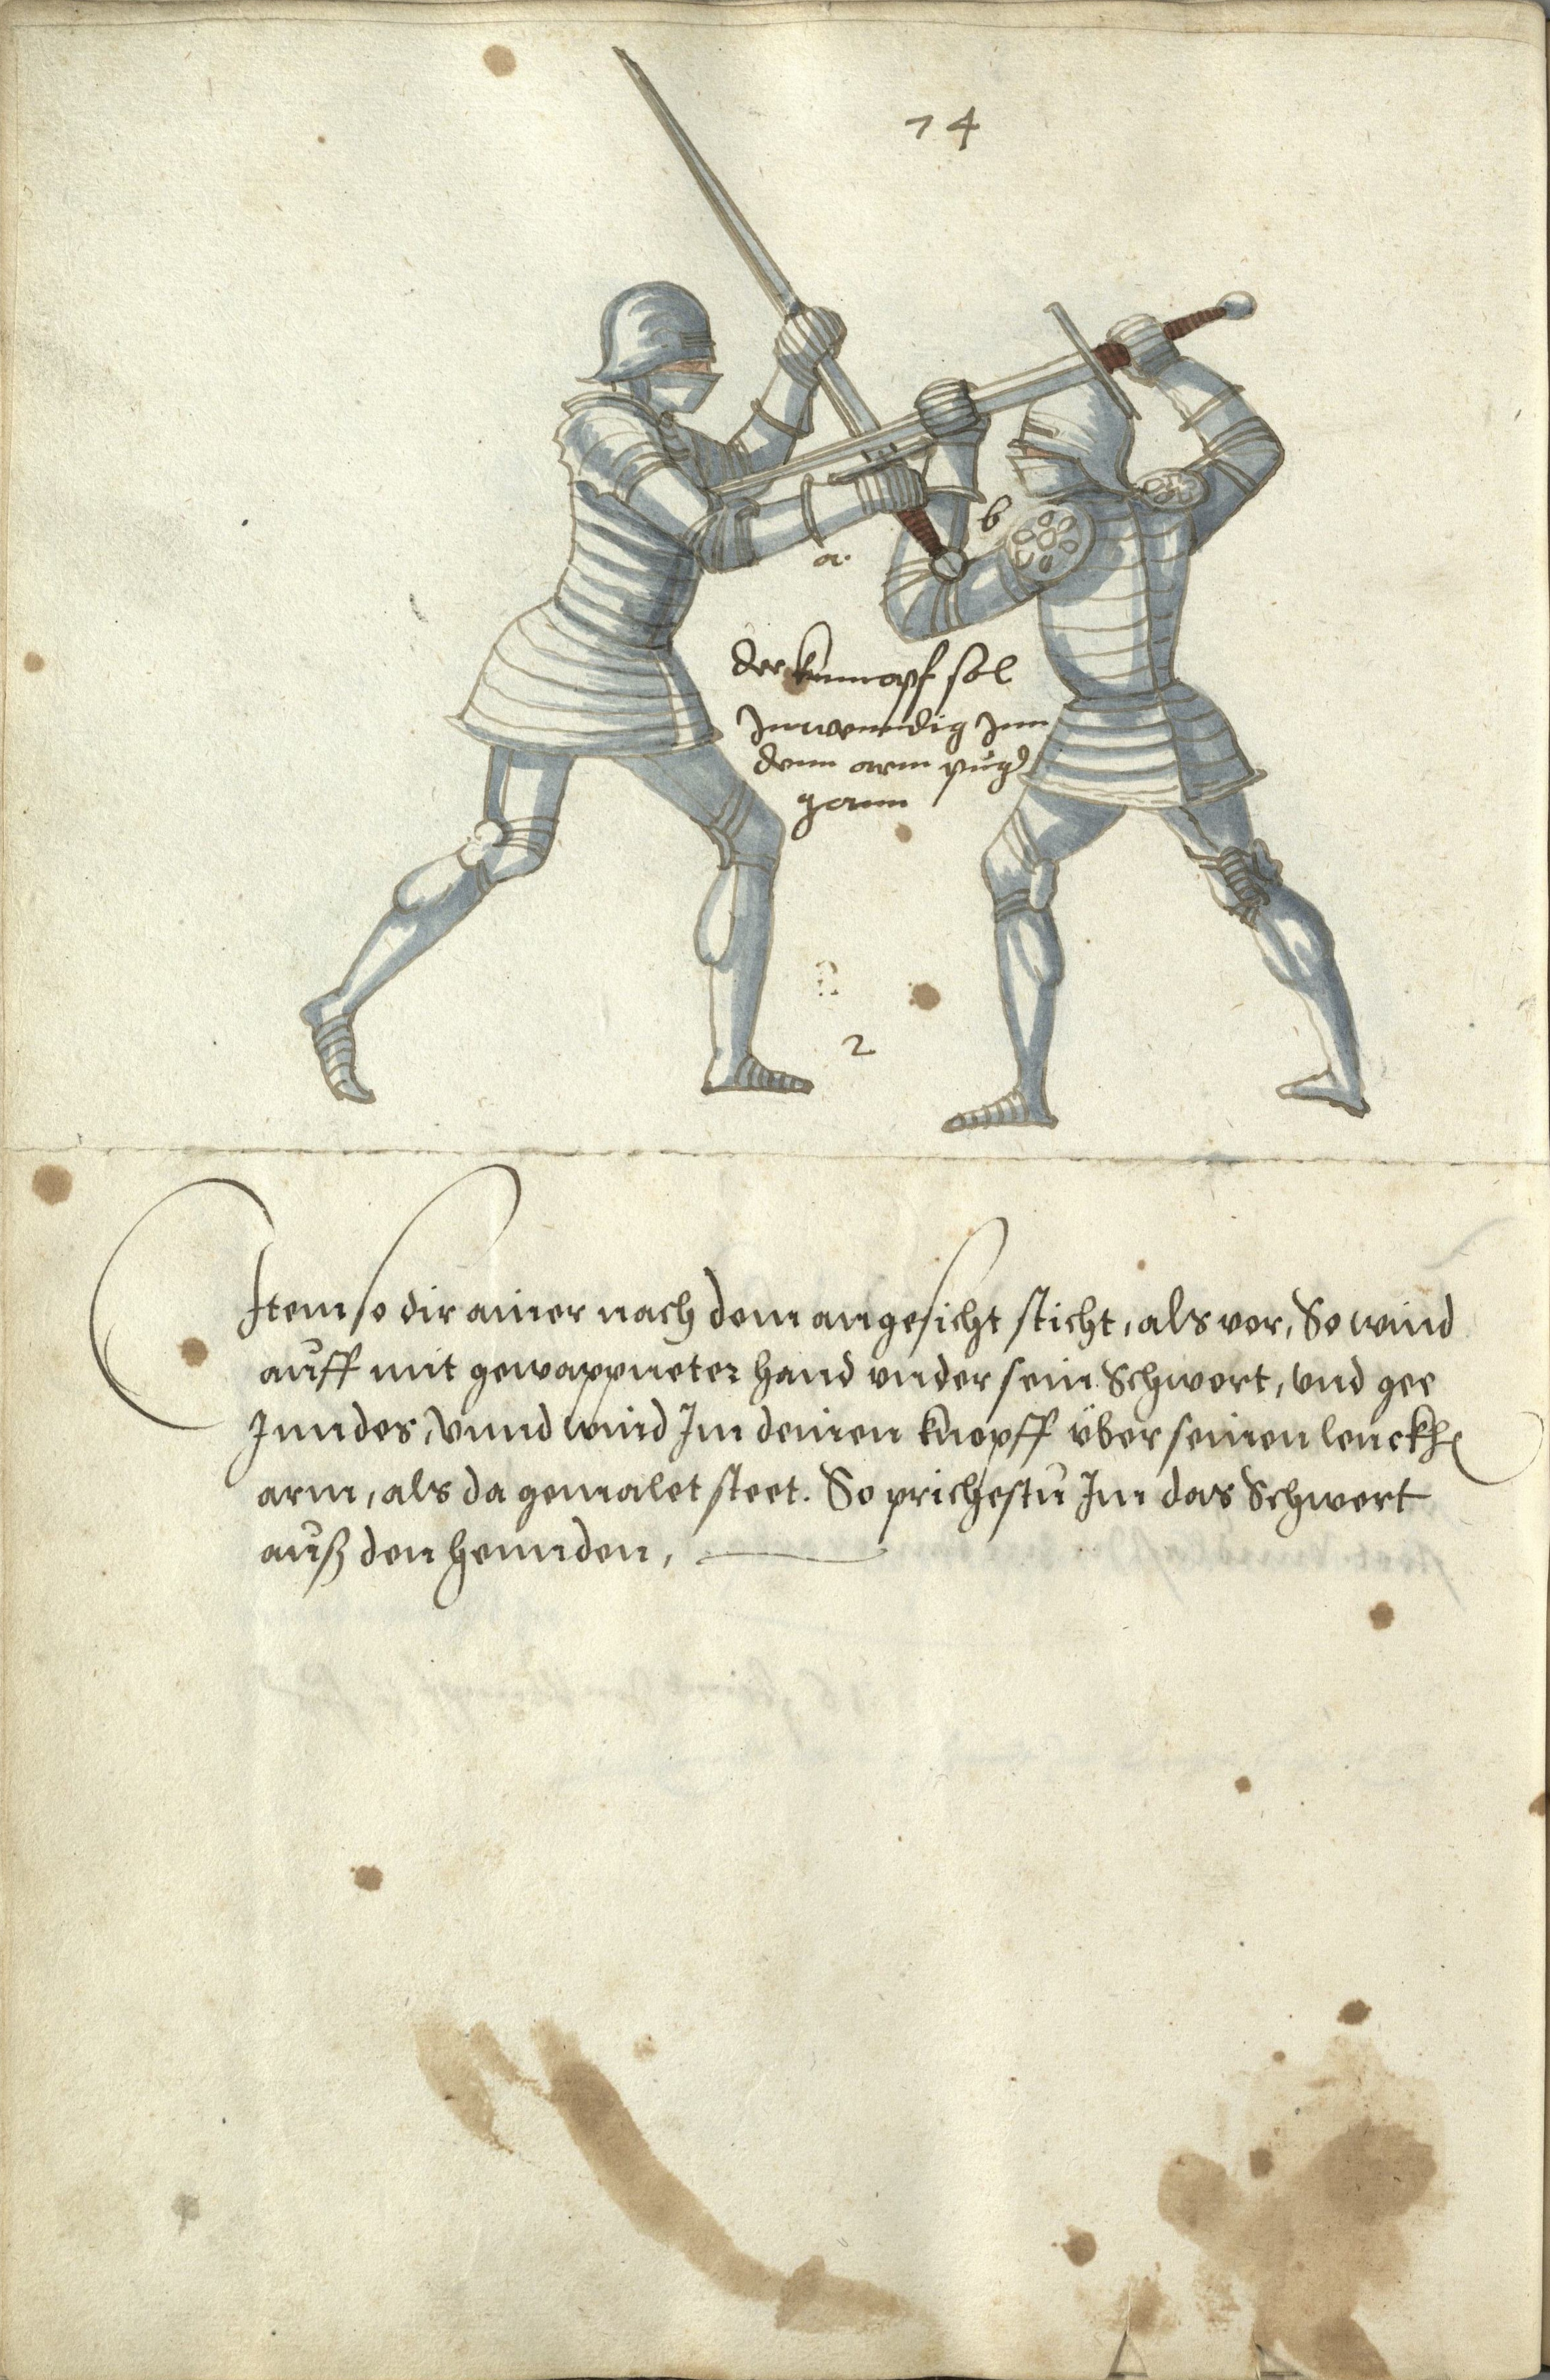 14
b
a.
der knnopf sol
Innwenndig Inn
denn arm pug
gonn
2
Item so dir ainer nach dem angesicht sticht, als vor, So wind
auff mit gewappneter hand vnder sein Schwert, vnd gee
Inndes, vnnd wind Im deinen knopff über seinen lenckh
arm, als da gemalet steet. So prichestu Im das Schwert
auß den hennden,